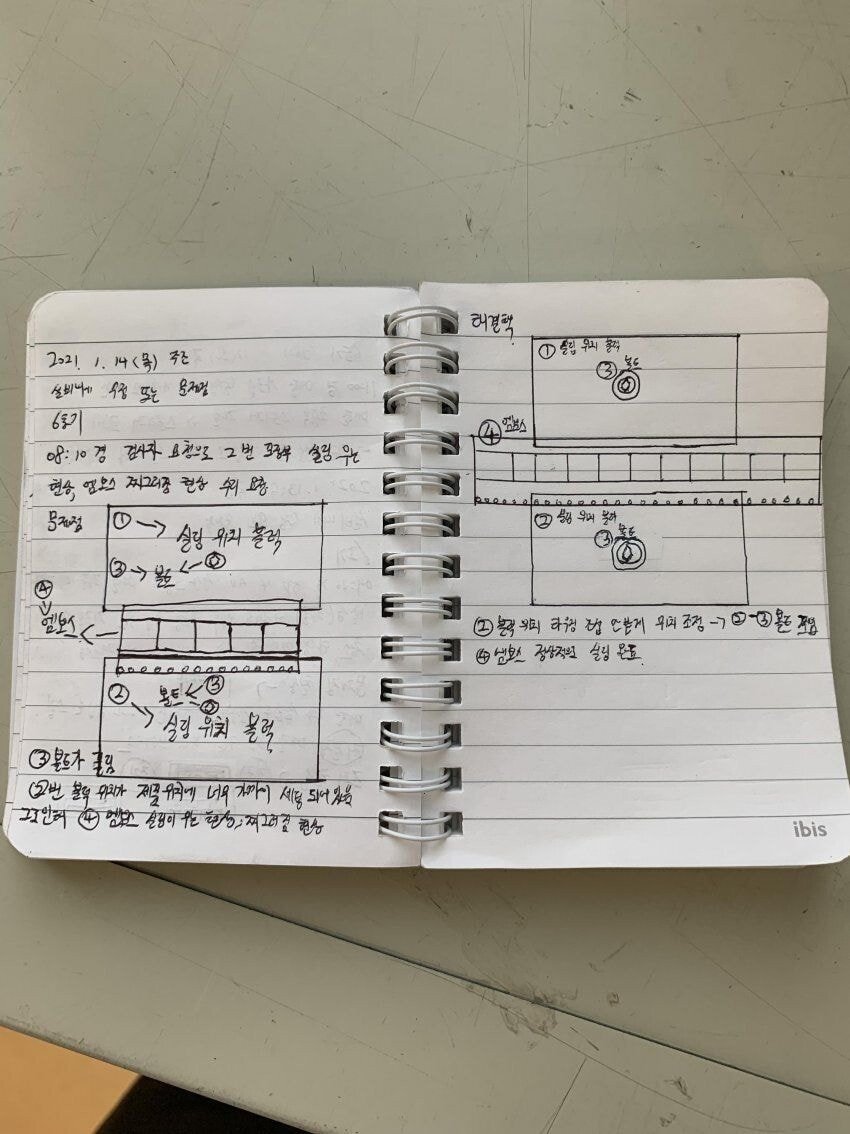 2021. 1. 14 (목) 주간
설비나게 수정 또는 문제점
6호기
08:10 경 검사자 요청으로 2번 포장부 실링 우는
현상, 엠보스 찌그러짐 현상 수리 요청
문제점
① → 실링 위치 블럭
③ → 볼트
④
엠보스
② → 실링 위치 블럭
볼트 ③
③ 볼트가 풀림
②번 블럭 위치가 제품위치에 너무 가까이 세팅 되어있음
그로인해 ④ 엠보스 실링이 우는 현상, 찌그러짐 현상
해결책
① 실링 위치 블럭
③ 볼트
④ 엠보스
② 실링 위치 블럭
③ 볼트
② 블럭 위치 위치 조정 → ② - ③ 볼트 조임
④ 엠보스 정상적인 실링 완료
ibis